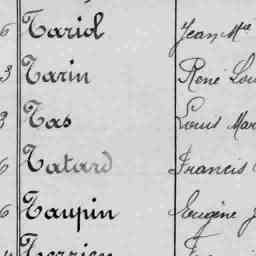 6 Tariol Jean Mie
3 Tarin René Lou
3 Tas Louis Mar
6 Tatard Francis
6 Taupin Eugène J
Terrien